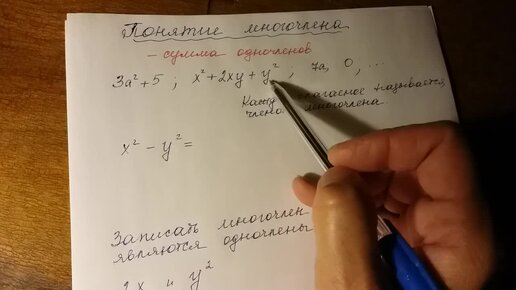 Понятие многочлена
– сумма одночленов
3a² + 5 ; x² + 2xy + y² ; 7a, 0, ...
называется
многочлена
x² − y² =
Записать многочлен
являются одночлены
2x и y²